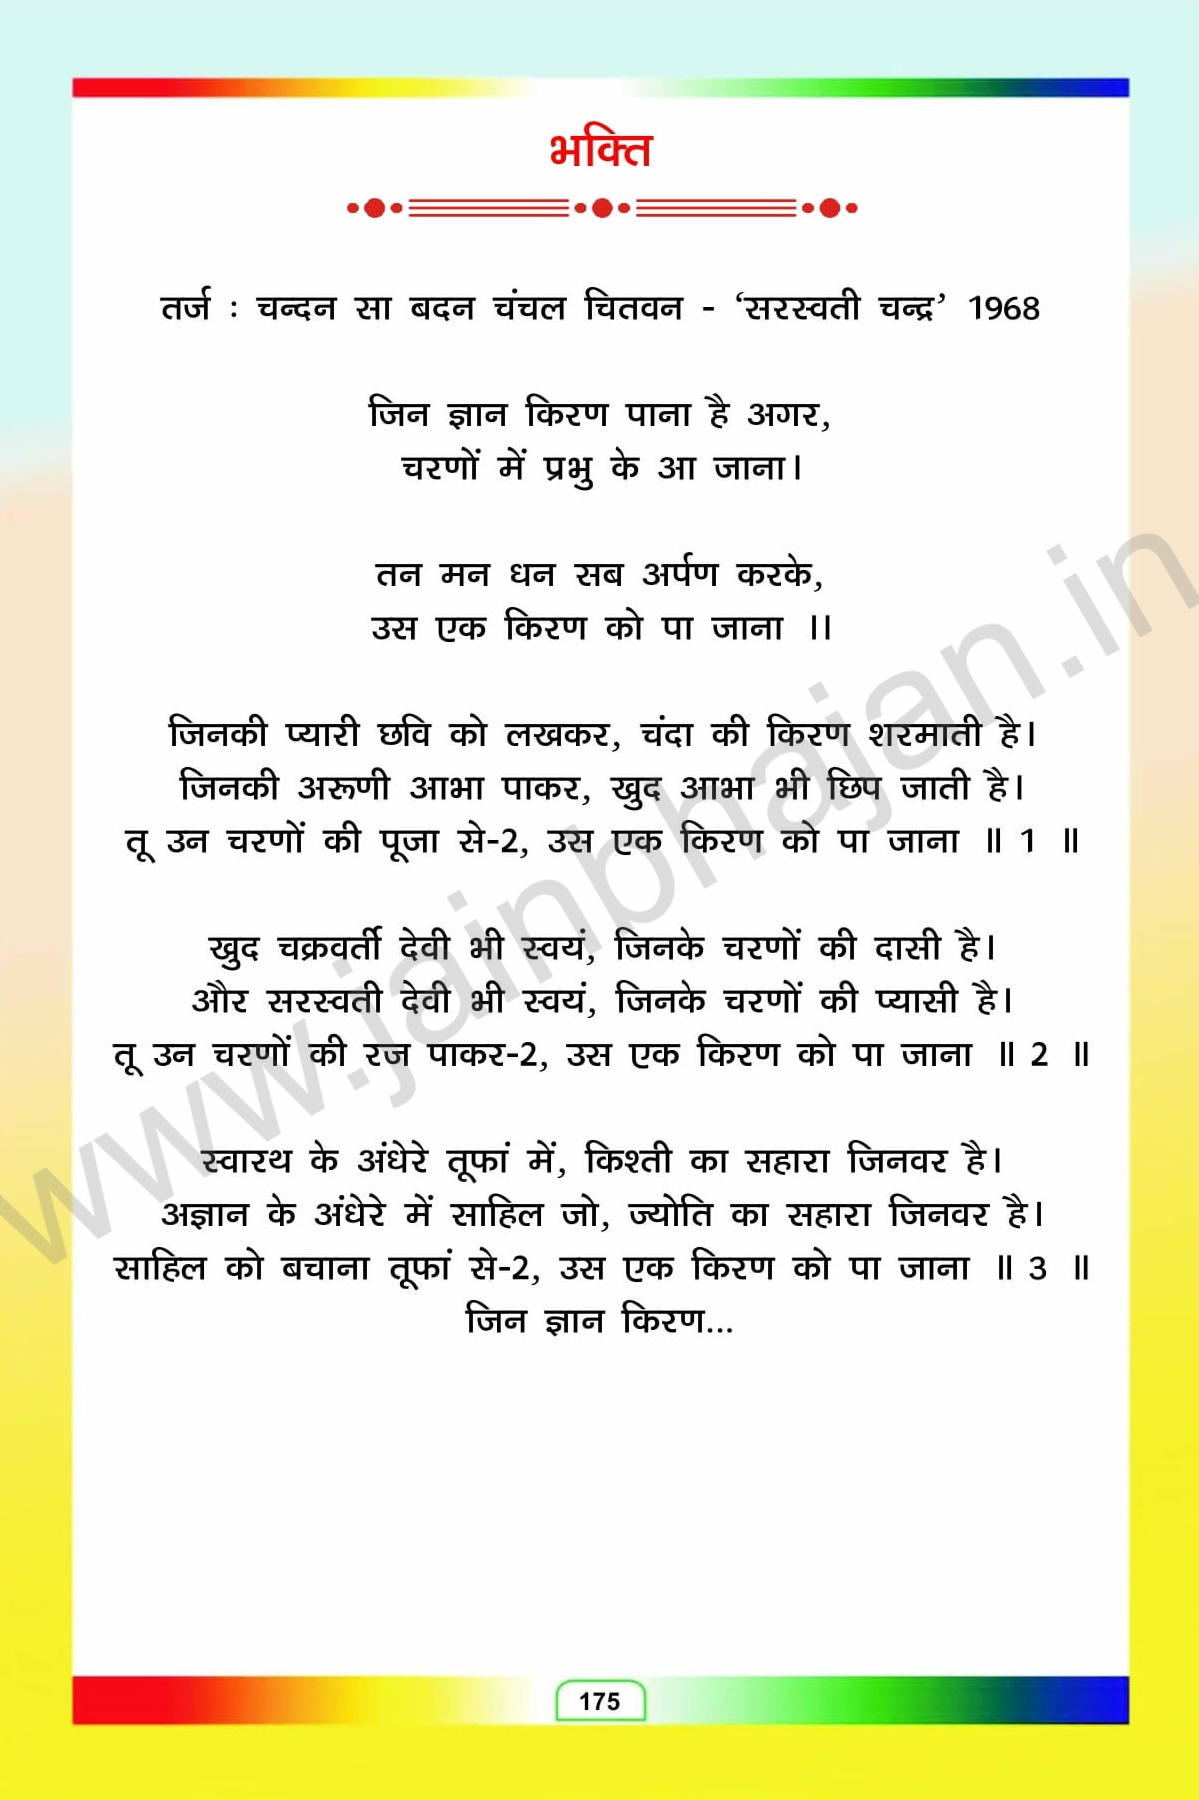 भक्ति
तर्ज : चन्दन सा बदन चंचल चितवन - ‘सरस्वती चन्द्र’ 1968
जिन ज्ञान किरण पाना है अगर,
चरणों में प्रभु के आ जाना।
तन मन धन सब अर्पण करके,
उस एक किरण को पा जाना ।।
जिनकी प्यारी छवि को लखकर, चंदा की किरण शरमाती है।
जिनकी अरूणी आभा पाकर, खुद आभा भी छिप जाती है।
तू उन चरणों की पूजा से-2, उस एक किरण को पा जाना ॥ 1 ॥
खुद चक्रवर्ती देवी भी स्वयं, जिनके चरणों की दासी है।
और सरस्वती देवी भी स्वयं, जिनके चरणों की प्यासी है।
तू उन चरणों की रज पाकर-2, उस एक किरण को पा जाना ॥ 2 ॥
स्वारथ के अंधेरे तूफां में, किश्ती का सहारा जिनवर है।
अज्ञान के अंधेरे में साहिल जो, ज्योति का सहारा जिनवर है।
साहिल को बचाना तूफां से-2, उस एक किरण को पा जाना ॥ 3 ॥
जिन ज्ञान किरण...
www.jainbhajan.in
175